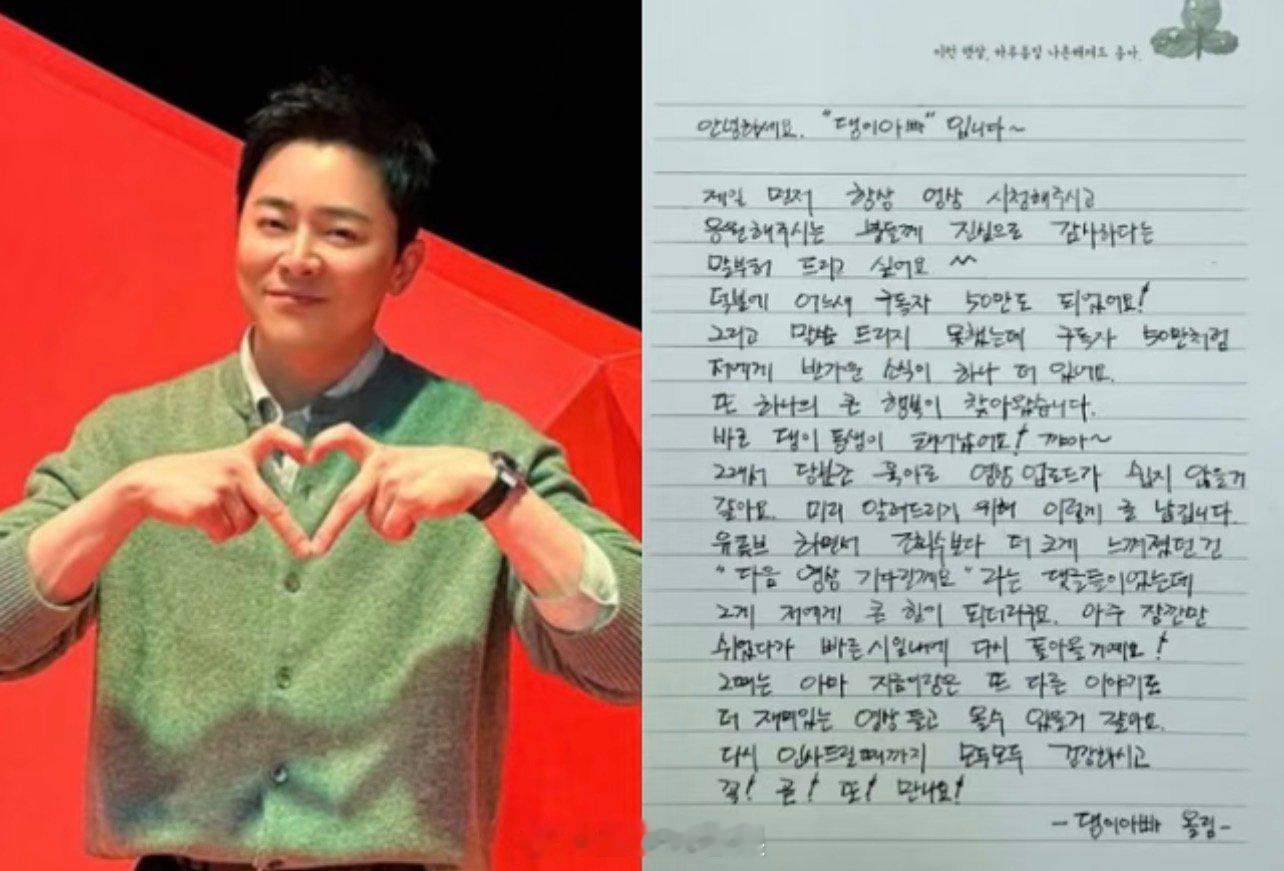 이런 햇살, 하루종일 나른해져도 좋아.
안녕하세요. "댕이아빠" 입니다~
제일 먼저 항상 영상 시청해주시고
응원해주시는 분들께 진심으로 감사하다는
말부터 드리고 싶어요 ^^
덕분에 어느새 구독자 50만도 되었어요!
그리고 말씀 드리지 못했는데 구독자 50만처럼
저에게 반가운 소식이 하나 더 있어요.
또 하나의 큰 행복이 찾아왔습니다.
바로 댕이 동생이 태어났어요! 꺄아~
그래서 당분간 육아로 영상 업로드가 쉽지 않을거
같아요. 미리 알려드리기 위해 이렇게 글 남깁니다.
유튜브 하면서 조회수보다 더 크게 느껴졌던 건
"다음 영상 기다릴께요" 라는 댓글들이었는데
그게 저에게 큰 힘이 되더라구요. 아주 잠깐만
쉬었다가 빠른시일내에 다시 돌아올거예요!
그때는 아마 지금이랑은 또 다른 이야기로
더 재미있는 영상 들고 올수 있을거 같아요.
다시 인사드릴때까지 모두모두 건강하시고
꼭! 곧! 또! 만나요!
- 댕이아빠 올림 -